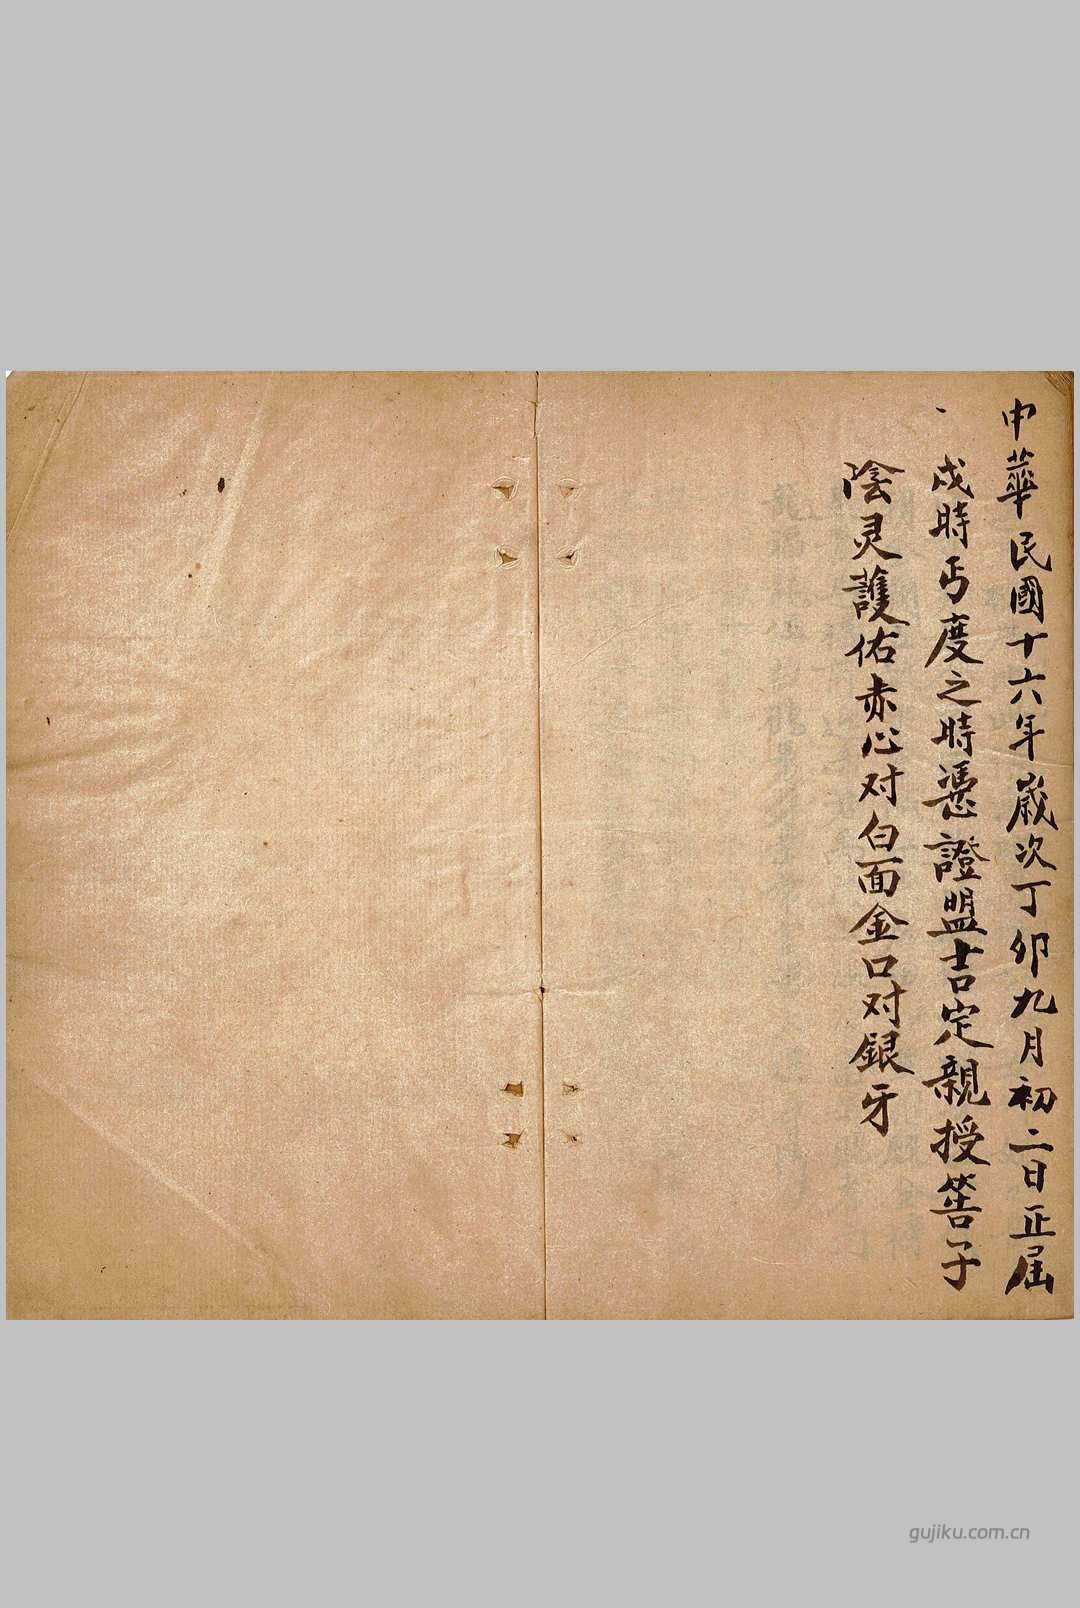 中華民國十六年歲次丁卯九月初二日正届
戌時丐度之時憑證盟吉定親授筶子
陰灵護佑赤心对白面金口对銀牙
gujiku.com.cn